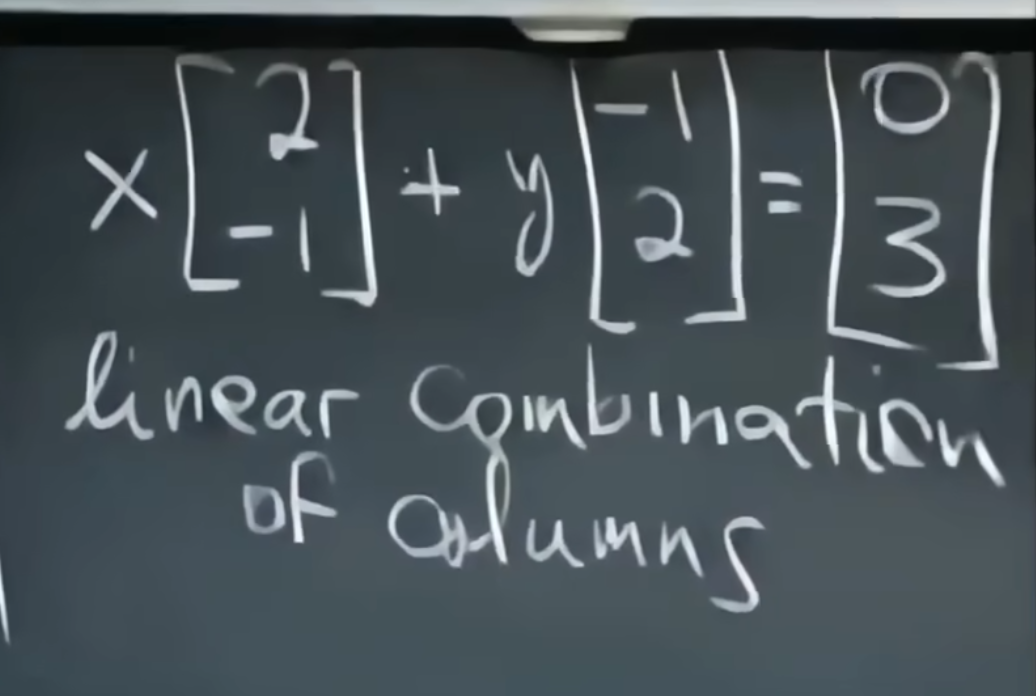 x [2 -1] + y [-1 2] = [0 3]
linear combination
of columns